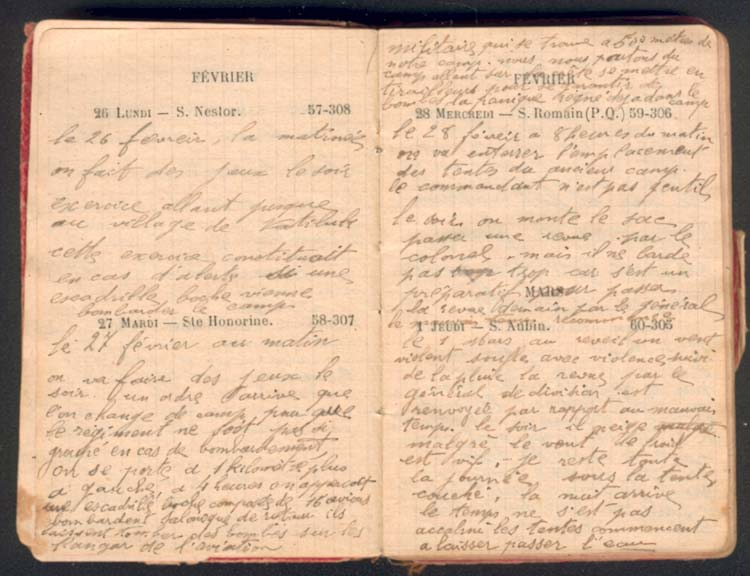 FÉVRIER
26 LUNDI — S. Nestor. 57-308
le 26 fevreir, la matinée
on fait des jeux le soir
exercice allant jusque
au village de Vatiluk
cette exercice constituait
en cas d'alerte si une
escadrille boche vienne
bombarder le camp
27 MARDI — Ste Honorine. 58-307
le 27 février au matin
on va faire des jeux le
soir un ordre arrive que
l'on change de camp pour que
le regiment ne soit pas si
groupé en cas de bombardement
on se porte à 1 kilomètre plus
a gauche, a 4 heures on apparcoit
une escadrille boche composée de 16 avions
bombardent Salonique de retour ils
laissent tomber des bombes sur les
hangar de l'aviation
militaire qui se trouve a 500 mètres de
notre camp. nous nous partons du
camp allant sur la se mettre en
tirailleurs pour se garantir de
bombes la panique regne deja dans le camp
FÉVRIER
28 MERCREDI — S. Romain (P.Q.) 59-306
le 28 février a 8 heures du matin
on va enterrer l'emplacement
des tentes du ancien camp.
le commandant n'est pas gentil
le soir on monte le sac
passer une revue par le
colonel, mais il ne tarde
pas trop car s'est un
préparatif pour passer
la revue demain par le général
le recommence
MARS
1 JEUDI — S. Aubin. 60-305
le 1 Mars au reveil un vent
violent souple avec violence, suivi
de la pluie la revue par le
général de division est
renvoyée par rapport au mauvais
temps. le soir il neige
malgré le vent de froid
est vif, je reste toute
la journée sous la tente
couché, la nuit arrive
le temps ne s'est pas
accalmé les tentes commencent
a laisser passer l'eau